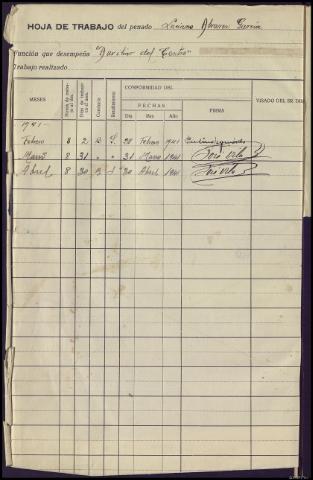 HOJA DE TRABAJO del penado Luciano Alvarez García
Función que desempeña "Auxiliar del Centro"
Trabajo realizado
MESES Horas de trabajo en el día. Días de trabajo en el mes. Conducta Rendimiento CONFORMIDAD DEL FECHAS Día Mes Año FIRMA VISADO DEL SR DI
1941
Febrero 8 2 B 28 Febrero 1941
Marzo 8 31 " " 31 Marzo 1941 José
Abril 8 30 B 30 Abril 1941 José